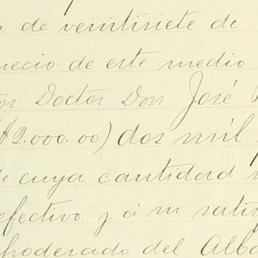 de veintisiete de
recio de este medio
Doctor Don José
($2.000.00) dos mil
de cuya cantidad
efectivo y á su satis
poderado del Alba